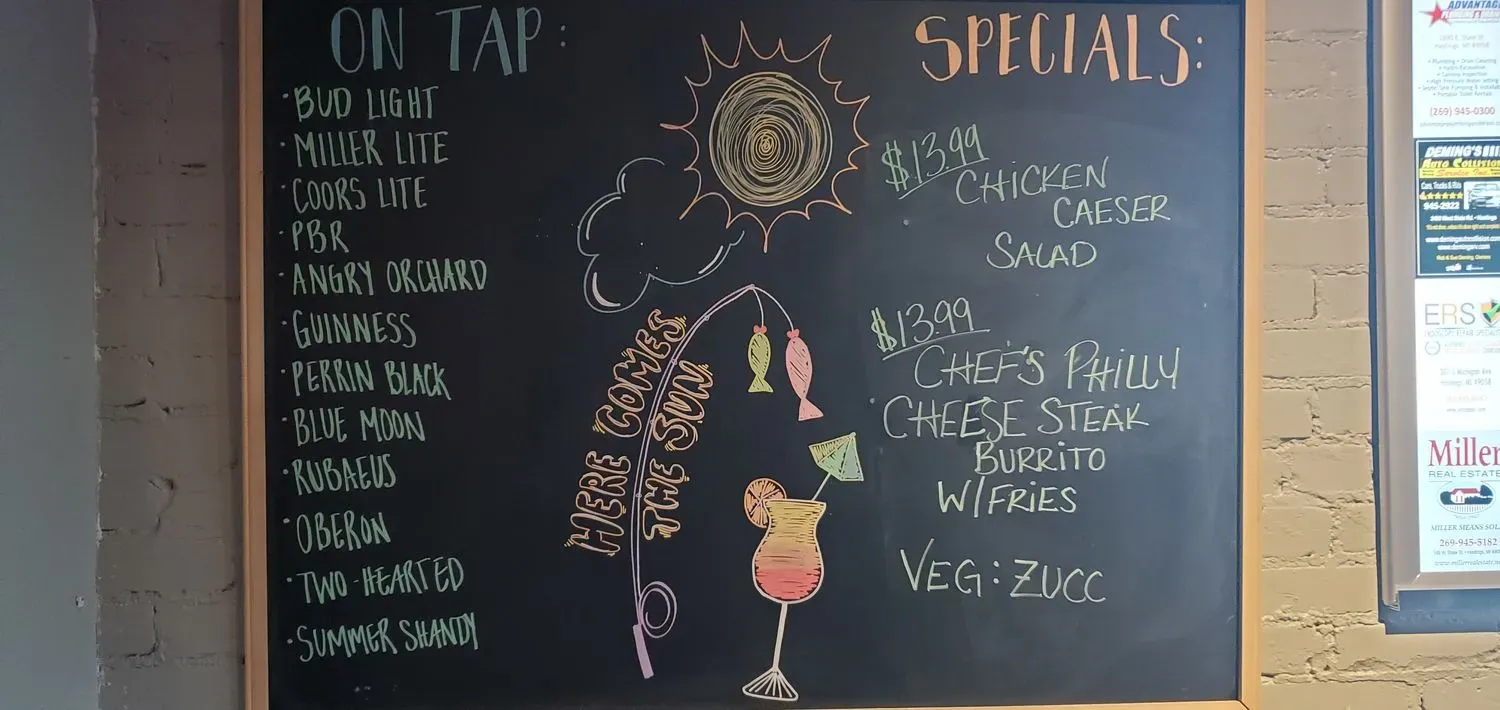 ON TAP:
·BUD LIGHT
·MILLER LITE
·COORS LITE
·PBR
·ANGRY ORCHARD
·GUINNESS
·PERRIN BLACK
·BLUE MOON
·RUBAEUS
·OBERON
·TWO-HEARTED
·SUMMER SHANDY
HERE COMES
THE SUN
SPECIALS:
$13.99
CHICKEN
CAESER
SALAD
$13.99
CHEF'S PHILLY
CHEESE STEAK
BURRITO
W/FRIES
VEG: ZUCC
ADVANTAGE
(269) 945-0300
DEMING'S
AUTO COLLISION
Service Inc.
Cars, Trucks & RVs
945-2922
ERS
Miller
REAL ESTATE
MILLER MEANS SOL
269-945-5182